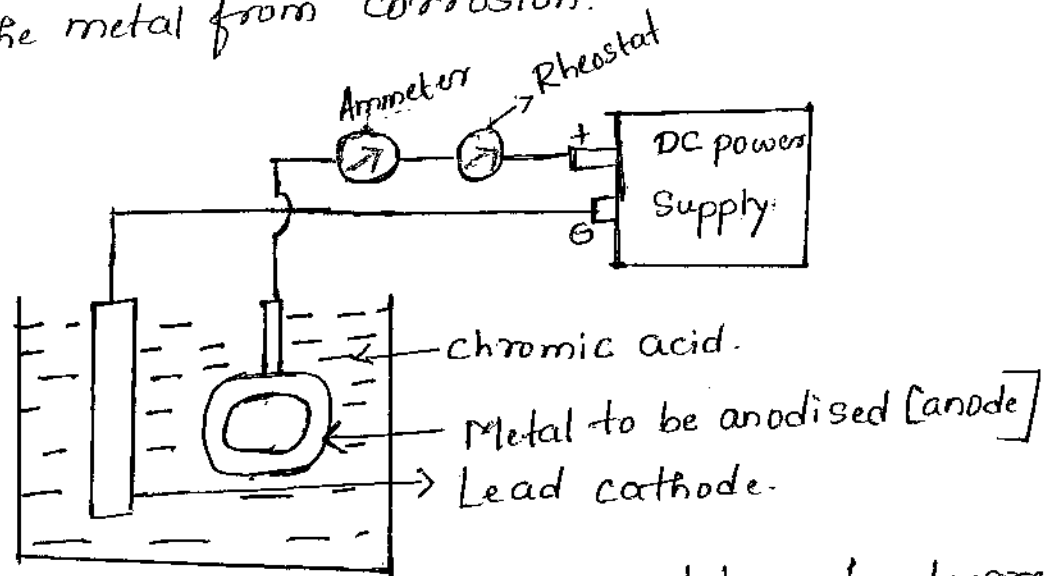 he metal from corrosion.
Ammeter
Rheostat
+
DC power
Supply.
⊖
chromic acid.
Metal to be anodised [anode]
Lead cathode.